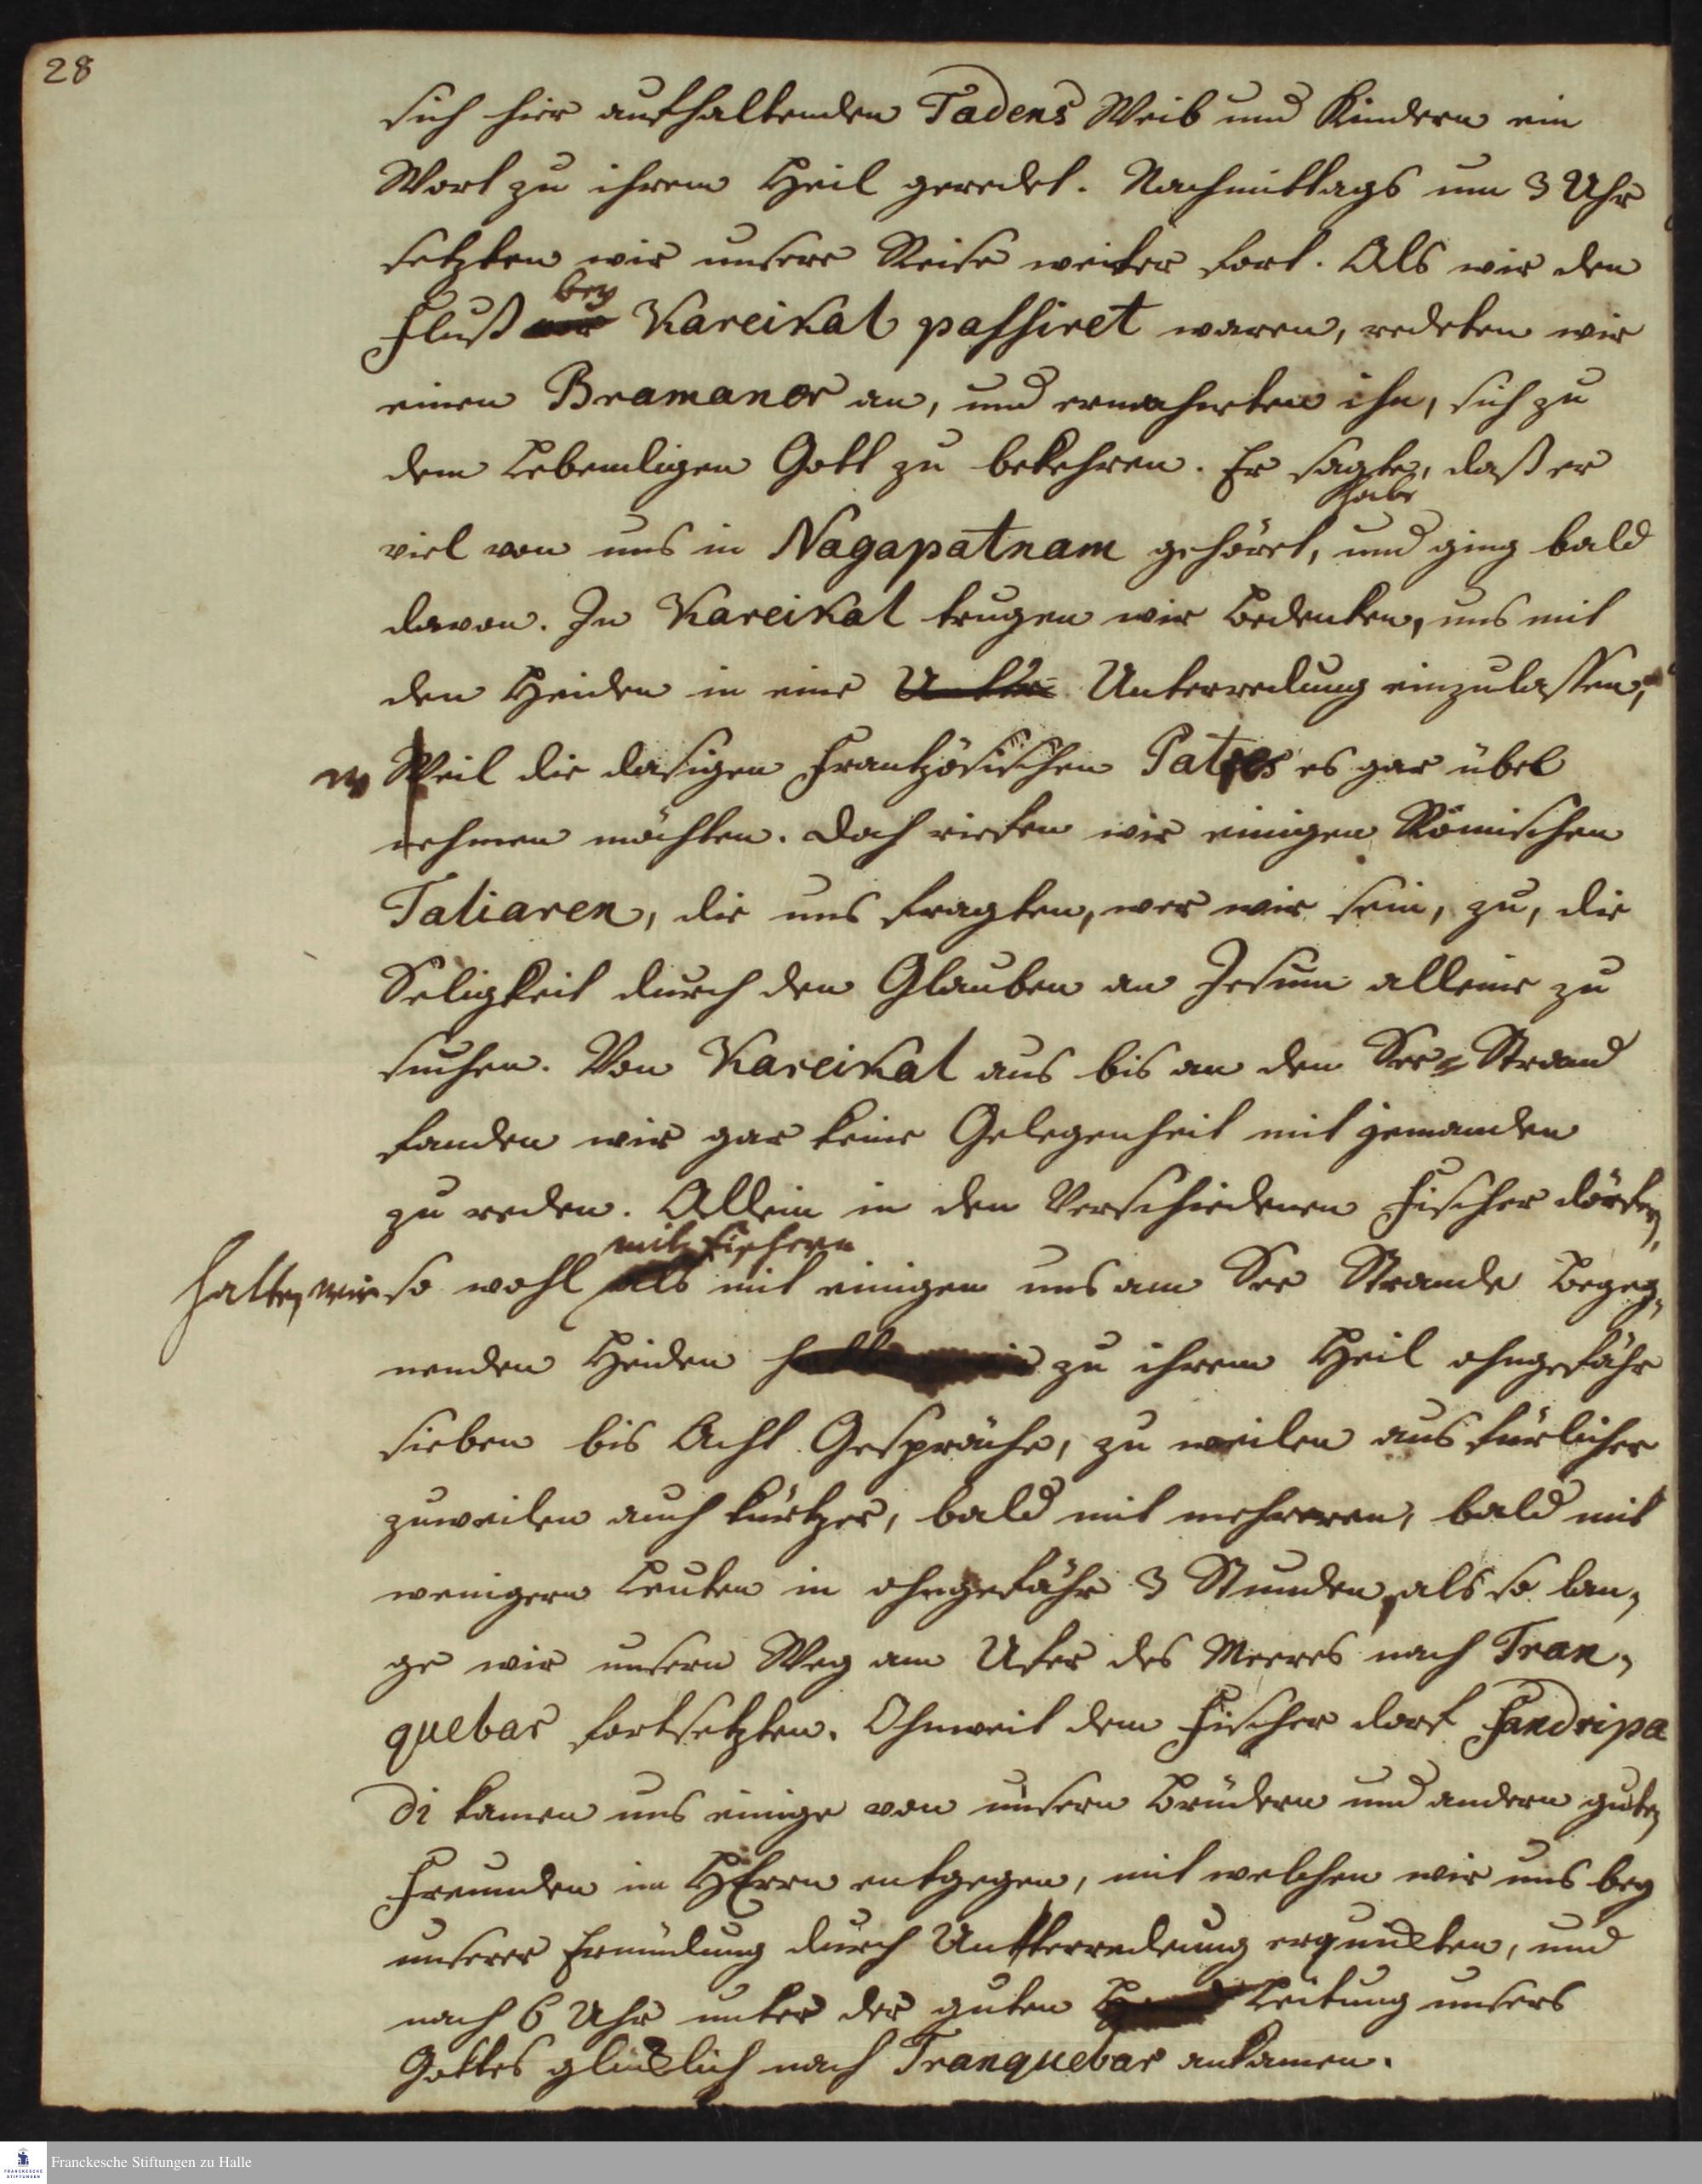 28
sich hier aufhaltenden Tadens Weib und Kindern ein
Wort zu ihrem Heil geredet. Nachmittags um 3 Uhr
setzten wir unsere Reise weiter fort. Als wir den
bey
Fluß vor Kareikal passiret waren, redeten wir
einen Bramaner an, und ermahnten ihn, sich zu
dem Lebendigen Gott zu bekehren. Er sagte, daß er
habe
viel von uns in Nagapatnam gehöret, und ging bald
davon. In Kareikal trugen wir Bedenken, uns mit
den Heiden in eine Unter Unterredung einzulassen,
w Weil die dasigen Frantzösischen Patres es gar übel
nehmen möchten. Doch riefen wir einigen Römischen
Taliaren, die uns fragten, wer wir sein, zu, die
Seligkeit durch den Glauben an Jesum alleine zu
suchen. Von Kareikal aus bis an den See-Strand
fanden wir gar keine Gelegenheit mit jemanden
zu reden. Allein in den Verschiedenen Fischer dörfen,
mit Fischern
hatten wir so wohl als mit einigen uns am See Strande begeg-
nenden Heiden hatten wir zu ihrem Heil ohngefähr
sieben bis Acht Gespräche, zu weilen ausfürlicher
zuweilen auch kürtzer, bald mit mehreren, bald mit
wenigern Leuten in ohngefähr 3 Stunden, als so lan-
ge wir unsern Weg am Ufer des Meeres nach Tran-
quebar fortsetzten. Ohnweit dem Fischer dorf Sandripa
di kamen uns einige von unsern Brüdern und andern guten
Freunden im HErrn entgegen, mit welchen wir uns bey
unserer Ermüdung durch Unterredung erquickten, und
nach 6 Uhr unter der guten Leitung unsers
Gottes glücklich nach Tranquebar ankamen.
Franckesche Stiftungen zu Halle
FRANCKESCHE STIFTUNGEN